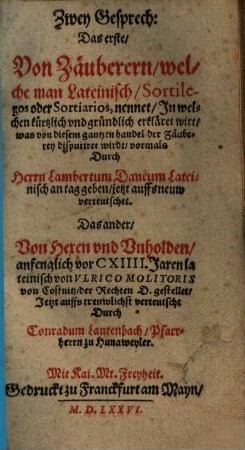 Zwey Gesprech:
Das erste/
Von Zäuberern/wel-
che man Lateinisch/Sortile-
gos oder Sortiarios, nennet/In wel-
chen kürtzlich vnd gründlich erkläret wirt/
was von diesem gantzen handel der Zäube-
rey disputiret wirdt/vormals
Durch
Herrn Lambertum Danæum Latei-
nisch an tag geben/jetzt auffs neuw
verteutschet.
Das ander/
Von Hexen vnd Vnholden/
anfenglich vor CXIIII. Jaren la-
teinisch von VLRICO MOLITORIS
von Costnitz/der Rechten D. gestellet/
Jetzt auffs treuwlichst verteutscht
Durch
Conradum Lautenbach/Pfarr-
herrn zu Hunaweyler.
Mit Kai. Mt. Freyheit.
Gedruckt zu Franckfurt am Mayn/
M. D. LXXVI.